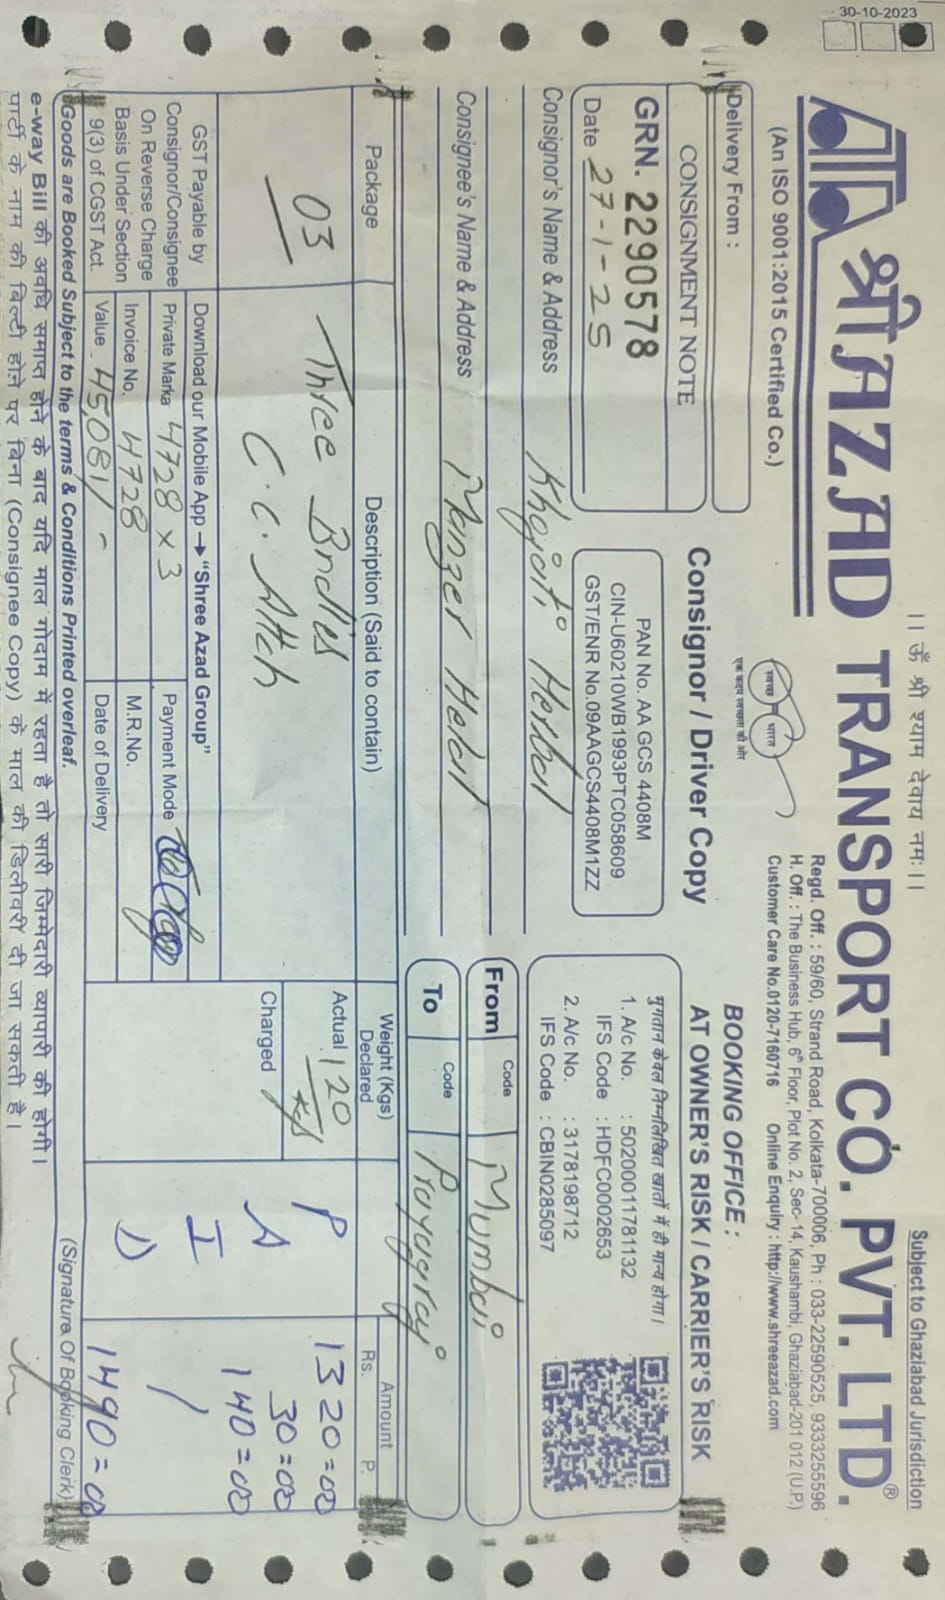 30-10-2023
।। ऊँ श्री श्याम देवाय नमः ।।
Subject to Ghaziabad Jurisdiction
श्री AZAD TRANSPORT CO. PVT. LTD.®
(An ISO 9001:2015 Certified Co.)
स्वच्छ भारत
एक कदम स्वच्छता की ओर
Regd. Off. : 59/60, Strand Road, Kolkata-700006, Ph : 033-22590525, 9333255596
H. Off. : The Business Hub, 6th Floor, Plot No. 2, Sec-14, Kaushambi, Ghaziabad-201 012 (U.P.)
Customer Care No.0120-7160716 Online Enquiry : http://www.shreeazad.com
Delivery From :
BOOKING OFFICE :
CONSIGNMENT NOTE
Consignor / Driver Copy
AT OWNER'S RISK / CARRIER'S RISK
GRN. 2290578
Date 27-1-25
PAN No. AA GCS 4408M
CIN-U60210WB1993PTC058609
GST/ENR No.09AAGCS4408M1ZZ
भुगतान केवल निम्नलिखित खातों में ही मान्य होगा।
1. A/c No. : 50200011781132
IFS Code : HDFC0002653
2. A/c No. : 3178198712
IFS Code : CBIN0285097
Consignor's Name & Address Khyati Herbal
From Code Mumbai
Consignee's Name & Address Manzer Helal
To Code Prayagraj
Package
Description (Said to contain)
Weight (Kgs)
Declared
Amount
Rs. P.
03
Three Bndles
C.C. Attch
Actual 120 Kgs
Charged
P 1320=00
A 30=00
I 140=00
D
1490=00
GST Payable by
Consignor/Consignee
On Reverse Charge
Basis Under Section
9(3) of CGST Act.
Download our Mobile App → "Shree Azad Group"
Private Marka 4728 x 3
Payment Mode
Invoice No. 4728
M.R.No.
Value . 45,081/-
Date of Delivery
Goods are Booked Subject to the terms & Conditions Printed overleaf.
(Signature Of Booking Clerk)
e-way Bill की अवधि समाप्त होने के बाद यदि माल गोदाम में रहता है तो सारी जिम्मेदारी व्यापारी की होगी।
पार्टी के नाम की बिल्टी होने पर बिना (Consignee Copy) के माल की डिलीवरी दी जा सकती है।